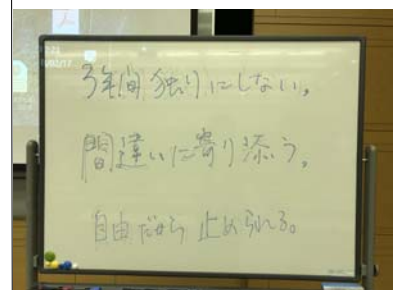 3年間独りにしない。
間違いに寄り添う。
自由だから止められる。